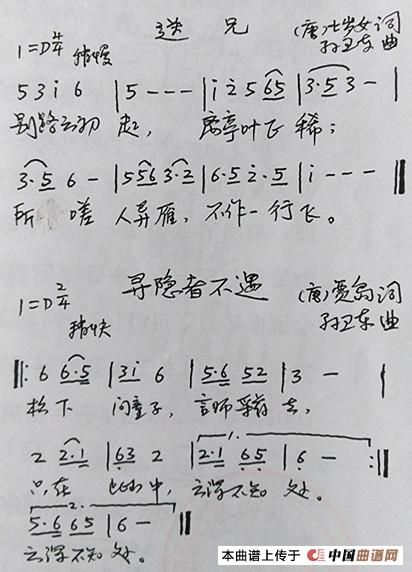 送兄
1=D 4/4 稍慢 (唐)七岁女 词
孙卫东 曲
5 3 i 6 | 5 - - - | i 2 5 65 | 3·5 3 - |
别路云初 起， 离亭叶飞 稀；
3·5 6 - | 5 56 3·2 | 6·5 2·5 | i - - - ‖
所 嗟 人异雁， 不作一行飞。
寻隐者不遇
1=D 2/4 稍快 (唐)贾岛 词
孙卫东 曲
‖: 6 6·5 | 3i 6 | 5·6 52 | 3 - |
松下 问童子， 言师采药 去，
2 2·1 | 63 2 | 1. 2·1 65 | 6 - :‖
只在 此山中， 云深不知 处。
2. 5·6 65 | 6 - ‖
云深不知 处。
本曲谱上传于 中国曲谱网